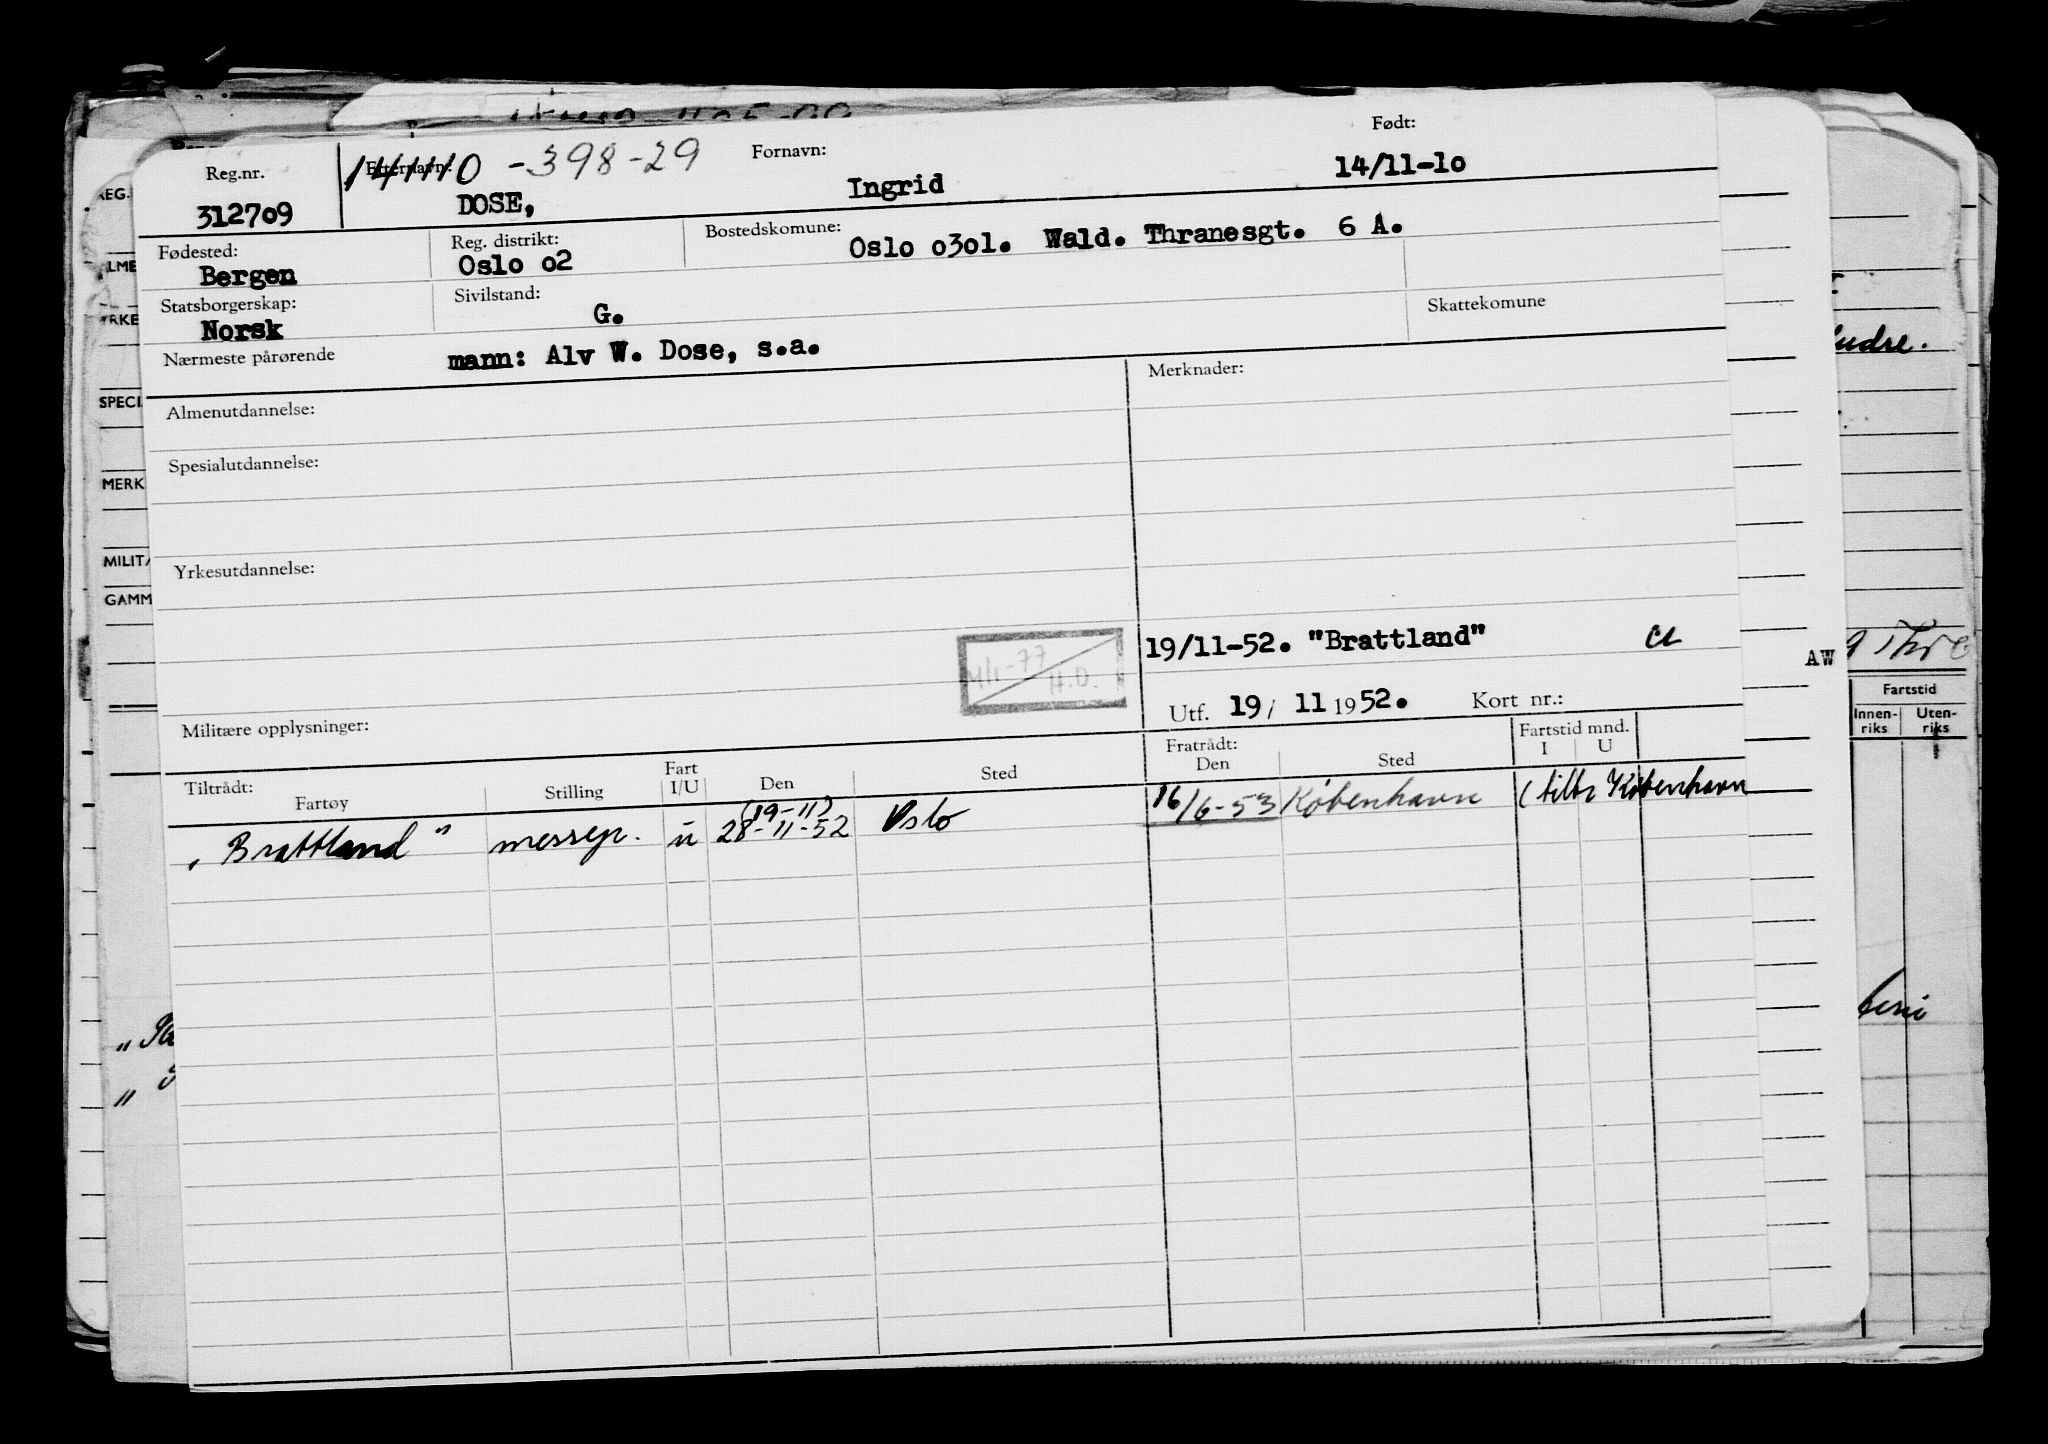 Reg.nr. 141110 -398-29 Fornavn: Født:
312709 DOSE, Ingrid 14/11-10
Fødested: Reg. distrikt: Bostedskomune:
Bergen Oslo o2 Oslo o3ol. Wald. Thranesgt. 6 A.
Statsborgerskap: Sivilstand: Skattekomune
Norsk G.
Nærmeste pårørende mann: Alv W. Dose, s.a.
Almenutdannelse: Merknader:
Spesialutdannelse:
Yrkesutdannelse:
19/11-52. "Brattland"
H.D.
Utf. 19/ 11 1952. Kort nr.:
Militære opplysninger:
Tiltrådt: Fratrådt: Fartstid mnd.
Fartøy Stilling Fart I/U Den Sted Den Sted I U
(19-11)
"Brattland" messep. u 28-11-52 Oslo 16/6-53 København (tilb. København
REG.
SPECI
MERK
MILIT
GAMM
AW
Fartstid
Innen-riks Uten-riks